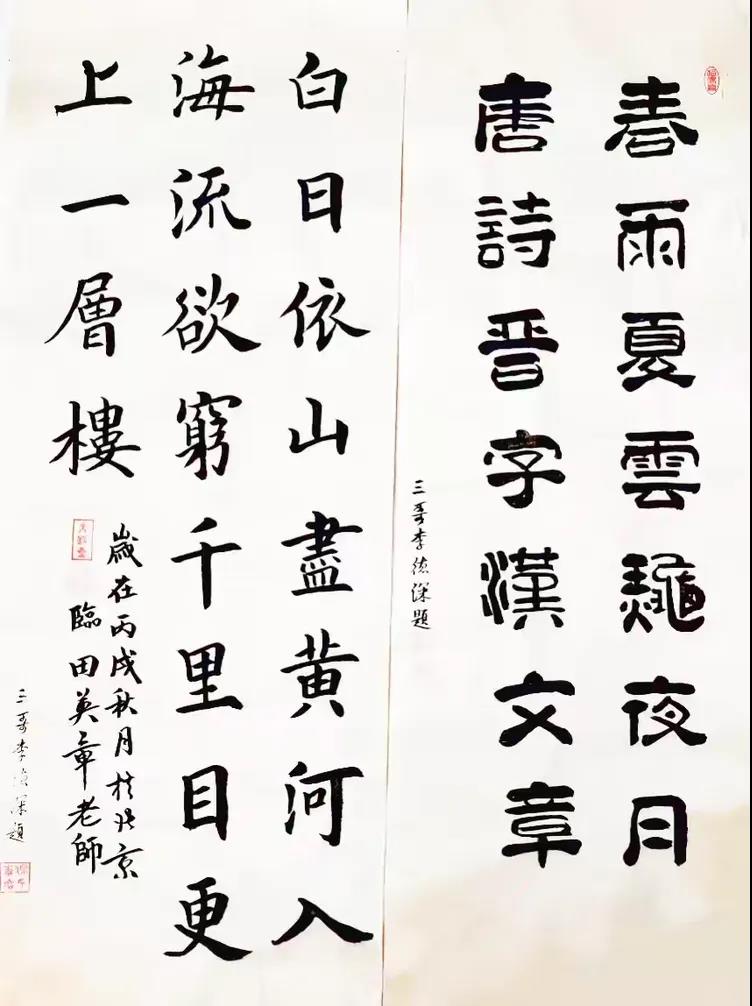 春雨夏雲龝夜月
唐詩晉字漢文章
三哥李德深題
白日依山盡黄河入
海流欲窮千里目更
上一層樓
歲在丙戌秋月於北京
臨田英章老師
三哥李德深題